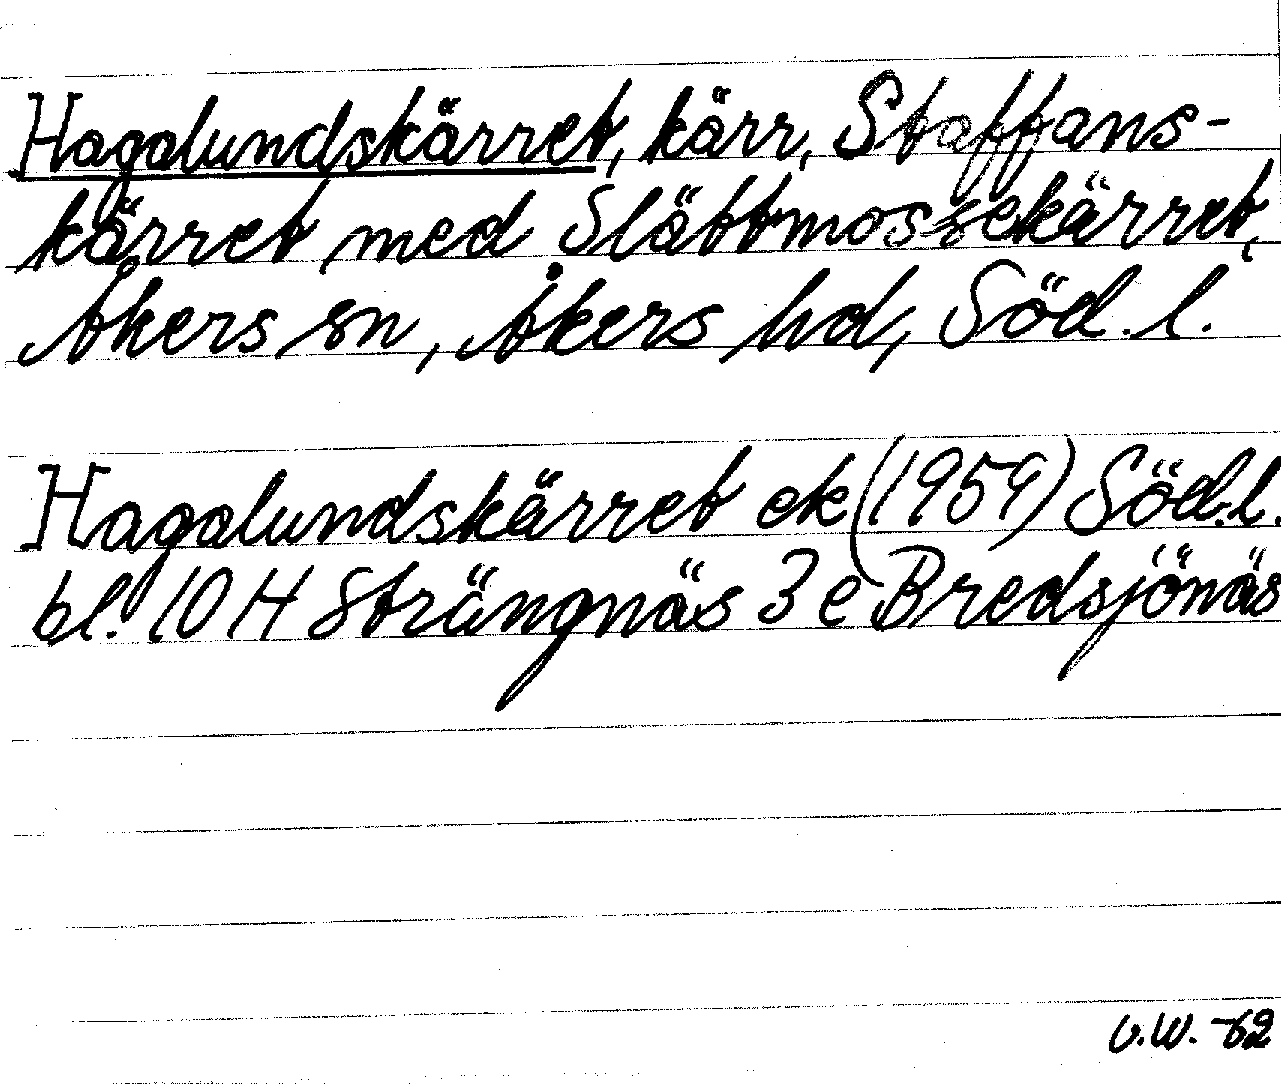 Hagalundskärret, kärr, Staffans-
kärret med Slättmossekärret,
Åkers sn, Åkers hd, Söd. l.
Hagalundskärret ek (1959) Söd. l.
bl. 10 H Strängnäs 3 e Bredsjönäs
U.W. -62